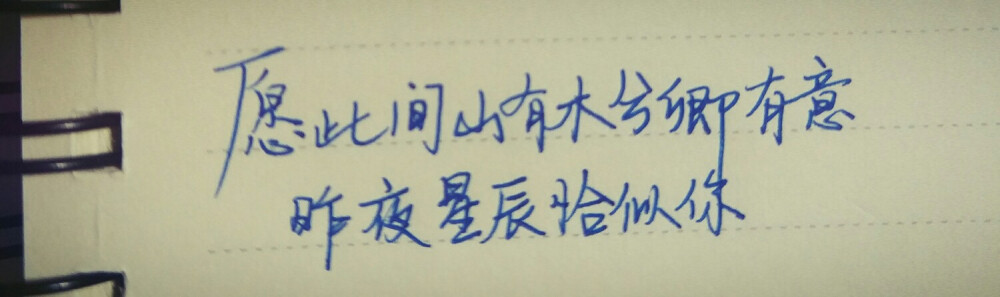 愿此间山有木兮卿有意
昨夜星辰恰似你